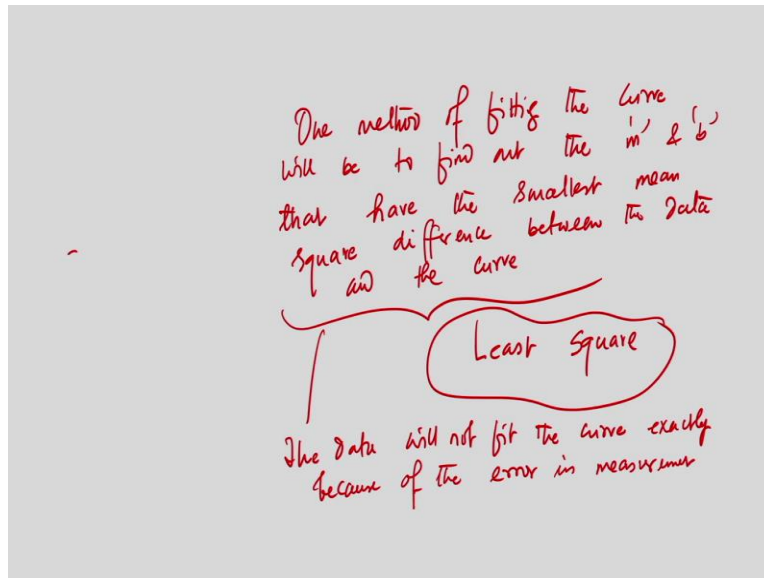 One method of fitting the curve
will be to find out the 'm' & 'b'
that have the smallest mean
square difference between the data
and the curve
Least Square
The data will not fit the curve exactly
because of the error in measurement